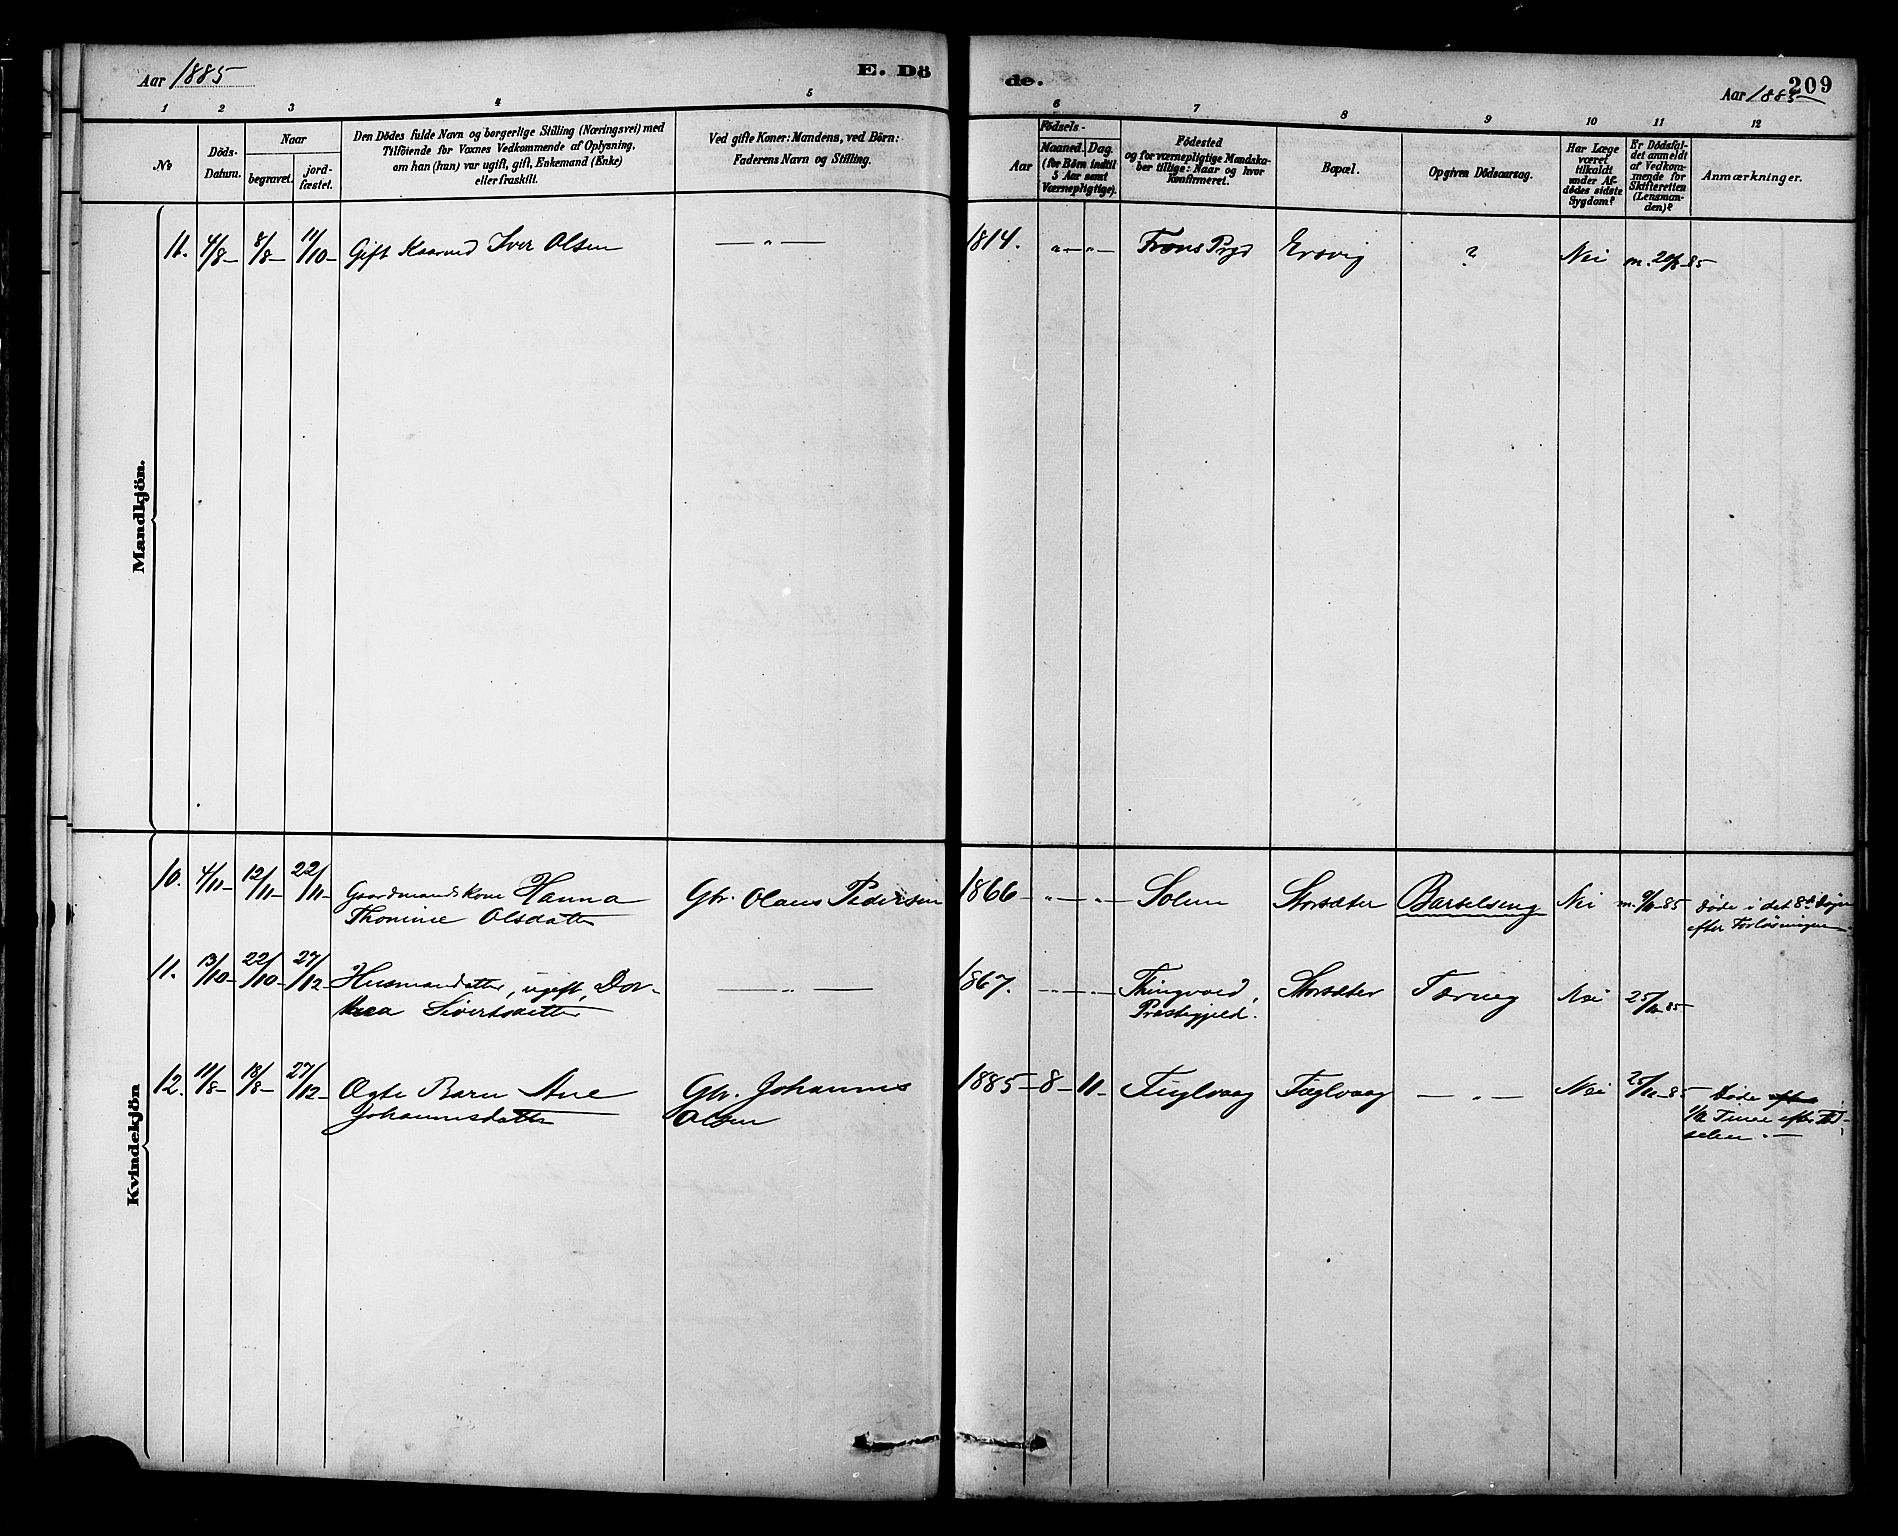 Aar 1885
E. Dö
de.
209
Aar 1885
1 2 3 4 5 6 7 8 9 10 11 12
№
Döds-
Datum.
Naar
begravet.
jord-
fæstet.
Den Dödes fulde Navn og borgerlige Stilling (Næringsvei) med
Tilföiende for Voxnes Vedkommende af Oplysning,
om han (hun) var ugift, gift, Enkemand (Enke)
eller fraskilt.
Ved gifte Koner: Mandens, ved Börn:
Faderens Navn og Stilling.
Födsels-
Aar
Maaned. Dag.
(for Börn indtil
5 Aar samt
Værnepligtige).
Födested
og for værnepligtige Mandska-
ber tillige: Naar og hvor
konfirmeret.
Bopæl.
Opgiven Dödsaarsag.
Har Læge
været
tilkaldt
under Af-
dödes sidste
Sygdom?
Er Dödsfal-
det anmeldt
af Vedkom-
mende for
Skifteretten
(Lensman-
den)?
Anmærkninger.
Mandkjön.
11. 4/8- 8/8- 11/10- Gift Kaarmd Iver Olsen — „ — 1814. „ — „ — Frons Prgd Ersvig ? Nei m. 20/8-85
Kvindekjön
10. 4/11- 12/11- 22/11- Gaardmandskone Hanna Gbr. Olaus Pedersen 1866 - „ - „ - Solem Storsæter Barselseng Nei m. 9/11-85 Døde i det 8de Døgn
Thomine Olsdatter efter Forløsningen.
11. 13/10- 22/10- 27/12- Husmandsdatter, ugift, Dor- — „ — 1867. „ — „ — Thingvold Storsæter Tæring Nei 25/10-85
thea Sivertsdatter Præstegjeld.
12. 11/8- 18/8- 27/12- Ægte Barn Ane Gbr. Johannes 1885-8-11- Fuglvaag Fuglvaag — „ — Nei 25/10-85 Døde
Johannesdatter Olsen 1/2 Time efter Fød-
selen.-